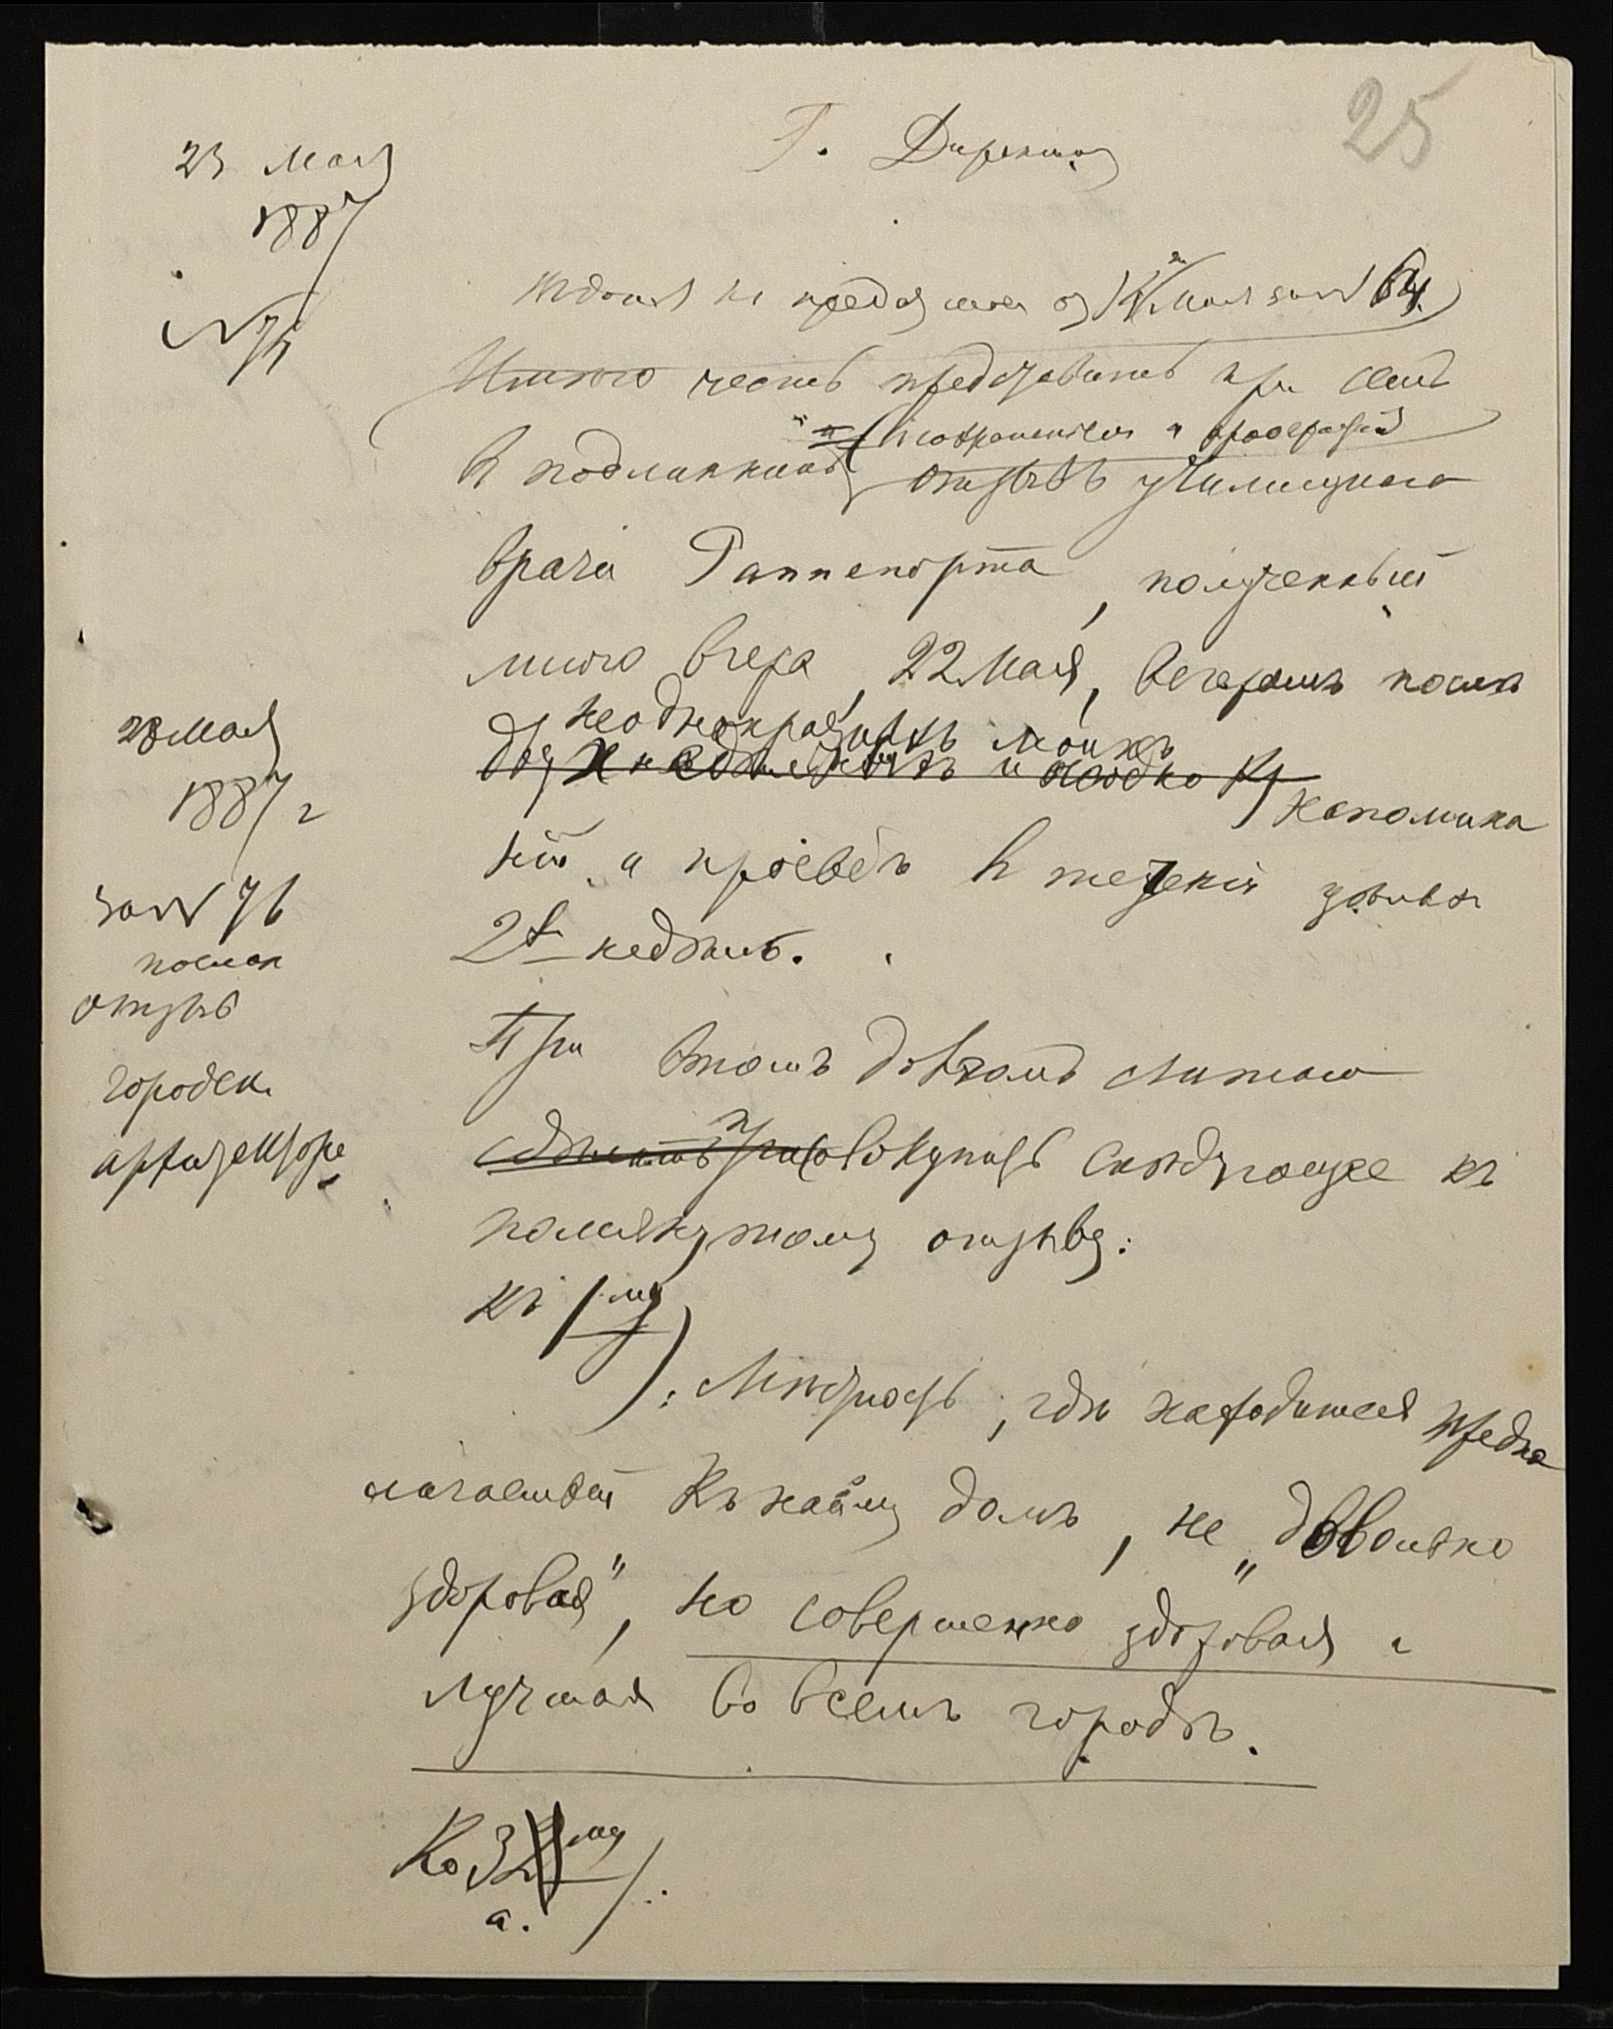 25
23 Мая
1887
№ 75
Г. Директор
Имѣю честь представить при семъ
въ подлинникѣ отзывъ училищнаго
врача Раппепорта, полученный
мною вчера, 22 Мая, вечеромъ послѣ
неоднократныхъ моихъ
напомина
ній и просьбъ въ теченіи цѣлыхъ
2х недѣль.
28 Мая
1887 г
за № 76
послан
отзывъ
городск.
архитектора
При этомъ долгомъ считаю
присовокупить слѣдующее къ
помянутому отзыву:
къ 1му)
: Мѣстность, гдѣ находится предпо
лагаемый къ найму домъ, не „довольно
здоровая", но совершенно здоровая и
лучшая во всемъ городѣ.
Ко 3му
а.